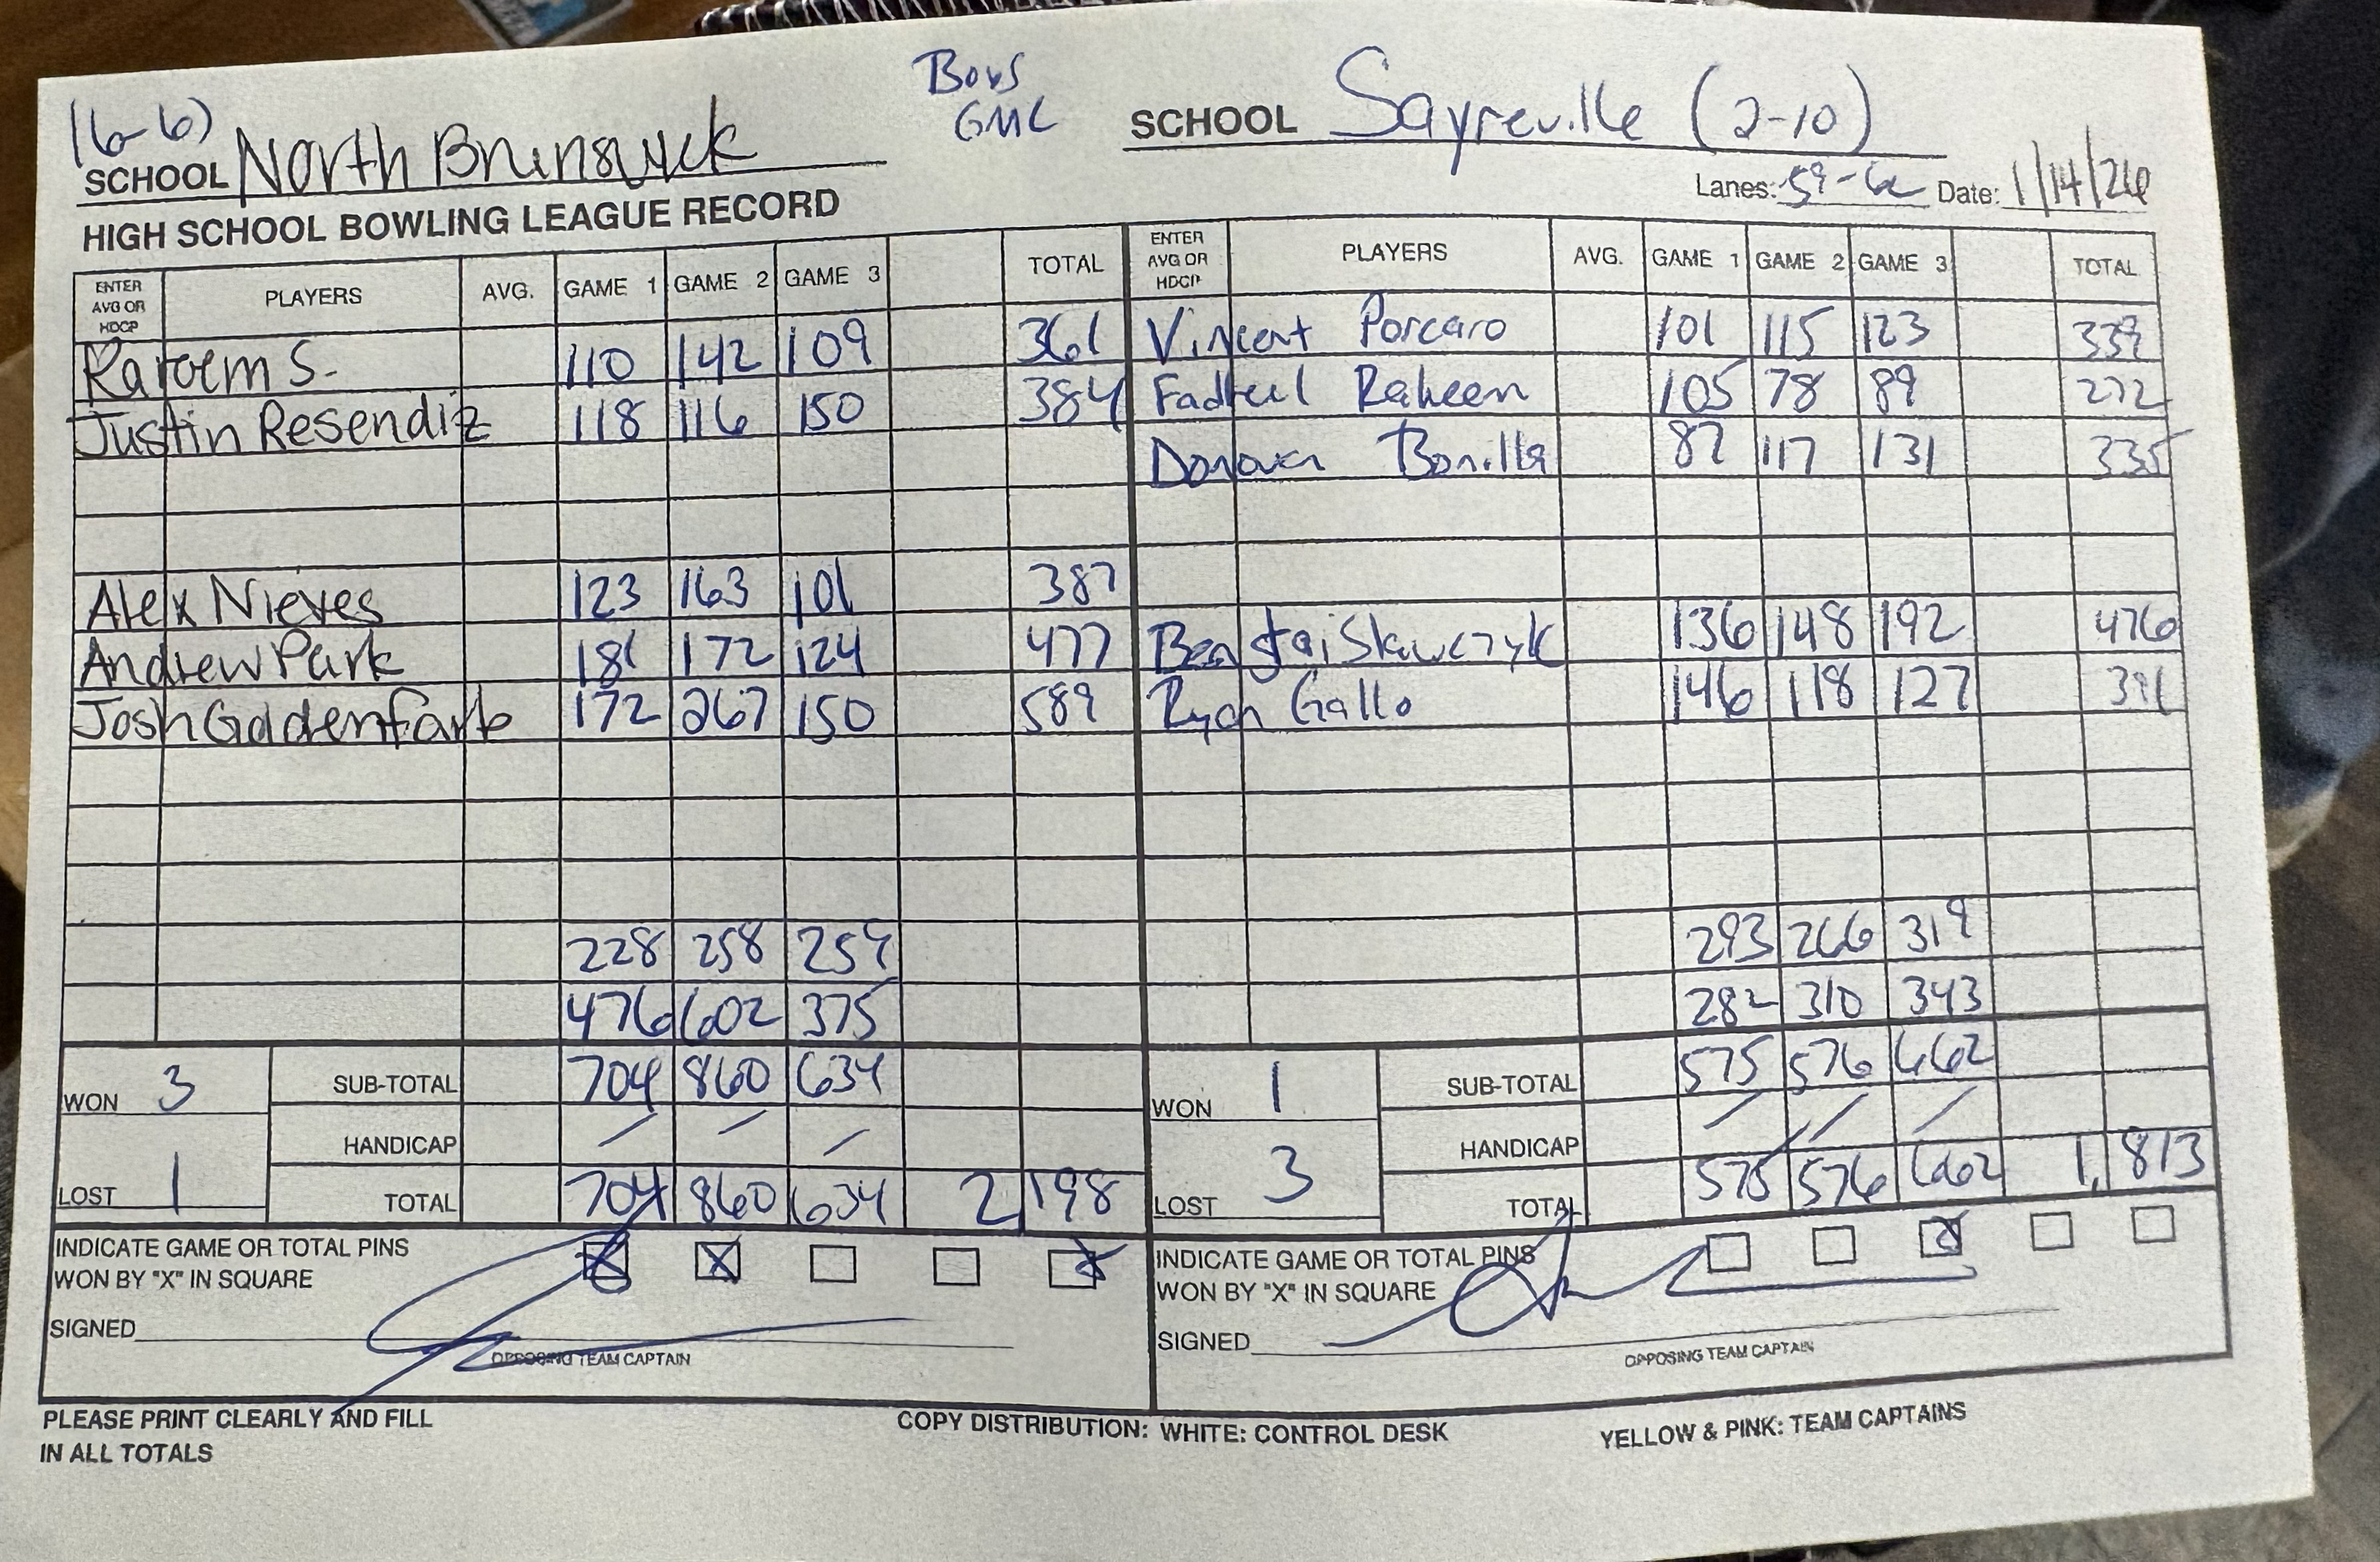 (6-6)
Boys
GMC
SCHOOL North Brunswick
SCHOOL Sayreville (2-10)
HIGH SCHOOL BOWLING LEAGUE RECORD
Lanes: 59-62 Date: 1/14/26
ENTER AVG OR HDCP PLAYERS AVG. GAME 1 GAME 2 GAME 3 TOTAL ENTER AVG OR HDCP PLAYERS AVG. GAME 1 GAME 2 GAME 3 TOTAL
Kareem S. 110 142 109 361 Vincent Porcaro 101 115 123 339
Justin Resendiz 118 116 150 384 Raheen 105 78 89 272
Donovan Bonilla 87 117 131 335
Alex Nieves 123 163 101 387
Andrew Park 181 172 124 477 136 148 192 476
Josh Goldenfarb 172 267 150 589 Ryan Gallo 146 118 127 391
228 258 259 293 266 319
476 602 375 282 310 343
WON 3 SUB-TOTAL 704 860 634 WON 1 SUB-TOTAL 575 576 662
HANDICAP / / / HANDICAP / / /
LOST 1 TOTAL 704 860 634 2 198 LOST 3 TOTAL 575 576 662 1,813
INDICATE GAME OR TOTAL PINS INDICATE GAME OR TOTAL PINS
WON BY "X" IN SQUARE X X X WON BY "X" IN SQUARE X
SIGNED SIGNED
OPPOSING TEAM CAPTAIN OPPOSING TEAM CAPTAIN
PLEASE PRINT CLEARLY AND FILL
IN ALL TOTALS
COPY DISTRIBUTION: WHITE: CONTROL DESK YELLOW & PINK: TEAM CAPTAINS